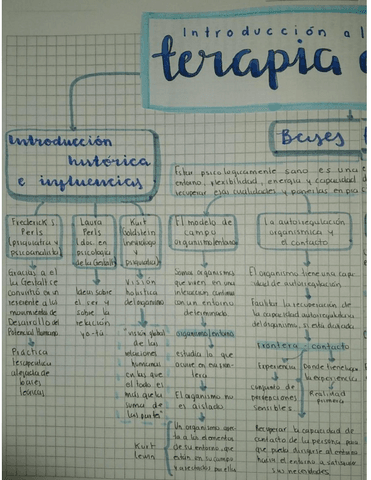 Introducción al
terapia
Introducción
histórica
e influencias
Bases
Estar psicológicamente sano es una
entorno, flexibilidad, energía y capacidad d
recuperar esas cualidades y ponerlas en
Frederick S.
Perls
(psiquiatra y
psicoanalista)
Gracias a el
la Gestalt se
convirtió en un
referente a los
movimientos de
Desarrollo del
Potencial Humano.
Práctica
terapéutica
alejada de
bases
teóricas
Laura
Perls
(doc. en
psicología
de la Gestalt)
Ideas sobre
el ser y
sobre la
relación
yo-tú
Kurt
Goldstein
(neurólogo
y
psiquiatra)
Visión
holística
del organismo
visión global
de las
relaciones
humanas
en las que
el todo es
más que la
suma de
las partes
Kurt
Lewin
El modelo de
campo
organismo/entorno
Somos organismos
que viven en una
interacción continua
con un entorno
determinado.
organismo/entorno
estudia lo que
ocurre en esa frontera
El organismo no
es aislado
Un organismo con
los elementos
de su entorno, que
están en su campo
y afectados por ella
La autorregulación
organísmica y
el contacto
El organismo tiene una capacidad
de autorregulación
Facilitar la recuperación de
la capacidad autorreguladora
del organismo, si está dañada
Frontera - contacto
Experiencia
conjunto de
percepciones
sensibles
Donde tiene lugar
la experiencia
Realidad
primera
Recuperar la capacidad de
contacto de la persona, para
que pueda dirigirse al entorno
hacia el entorno a satisfacer
sus necesidades.